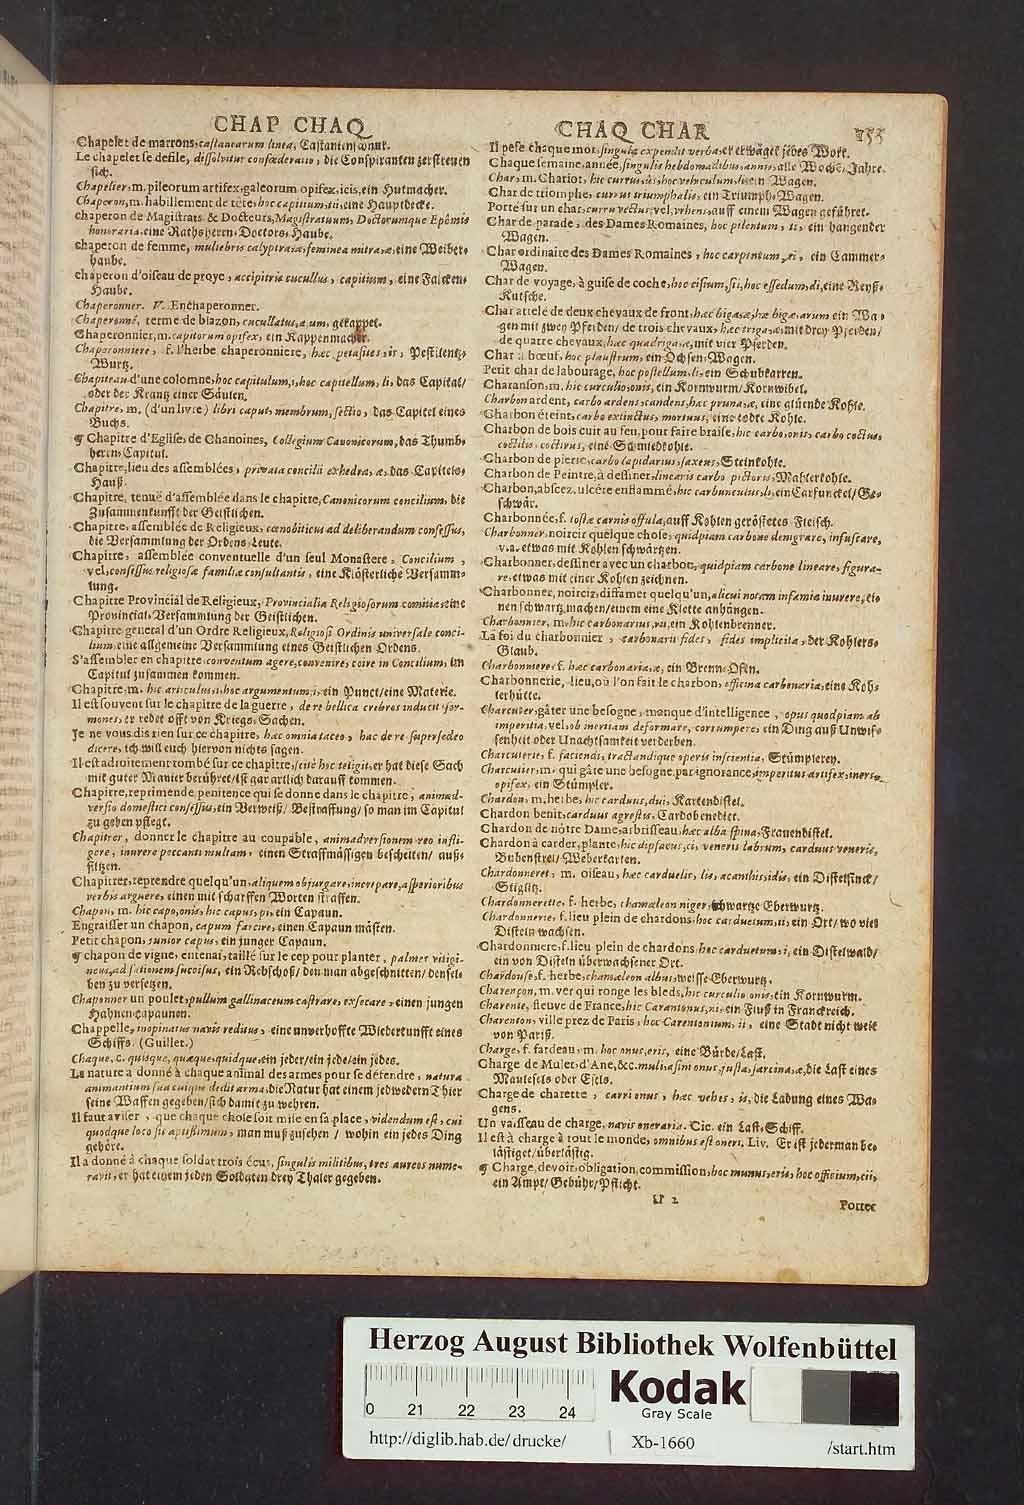 CHAP CHAQ
Chapelet de marrons, castanearum linea, Castanienschnur.
Le chapelet se defile, dissolvitur confœderatio, die Conspiranten zerstreuen
sich.
Chapelier, m. pileorum artifex, galeorum opifex, icis, ein Hutmacher.
Chaperon, m. habillement de tête, hoc capitium, tii, eine Hauptdecke.
chaperon de Magistrats & Docteurs, Magistratuum, Doctorumque Epômis
honoraria, eine Rathsherrn-Doctors-Haube.
chaperon de femme, muliebris calyptra, æ, feminea mitra, æ, eine Weiber-
haube.
chaperon d'oiseau de proye, accipitris cucullus, capitium, eine Falcken-
Haube.
Chaperonner. V. Enchaperonner.
Chaperonné, terme de blazon, cucullatus, a, um, gekappet.
Chaperonnier, m. capitorum opifex, ein Kappenmacher.
Chaperonniere, f. l'herbe chaperonniere, hæc petasites, Pestilentz-
Wurtz.
Chapiteau d'une colomne, hoc capitulum, i, hoc capitellum, li, das Capital/
oder der Krantz einer Säulen.
Chapitre, m. (d'un livre) libri caput, membrum, sectio, das Capitel eines
Buchs.
¶ Chapitre d'Eglise, de Chanoines, Collegium Canonicorum, das Thumb-
herrn Capitul.
Chapitre, lieu des assemblées, privata concilii exhedra, æ, das Capitels-
Hauß.
Chapitre, tenuë d'assemblée dans le chapitre, Canonicorum concilium, die
Zusammenkunfft der Geistlichen.
Chapitre, assemblée de Religieux, cœnobiticus ad deliberandum consessus,
die Versammlung der Ordens-Leute.
Chapitre, assemblée conventuelle d'un seul Monastere, Concilium,
vel, consessus religiosæ familiæ consultantis, eine Klösterliche Versamm-
lung.
Chapitre Provincial de Religieux, Provincialia Religiosorum comitia, eine
Provincial-Versammlung der Geistlichen.
Chapitre general d'un Ordre Religieux, Religiosi Ordinis universale conci-
lium, eine allgemeine Versammlung eines Geistlichen Ordens.
S'assembler en chapitre, conventum agere, convenire, coire in Concilium, im
Capitul zusammen kommen.
Chapitre, m. hic articulus, i, hoc argumentum, i, ein Punct/ eine Materie.
Il est souvent sur le chapitre de la guerre, de re bellica crebros inducit ser-
mones, er redet offt von Kriegs-Sachen.
Je ne vous dis rien sur ce chapitre, hæc omnia taceo, hac de re supersedeo
dicere, ich will euch hiervon nichts sagen.
Il est adroitement tombé sur ce chapitre, scitè hoc tetigit, er hat diese Sach
mit guter Manier berühret/ ist gar artlich darauff kommen.
Chapitre, reprimende, penitence qui se donne dans le chapitre, animad-
versio domestici consessus, ein Verweiß/ Bestraffung/ so man im Capitul
zu geben pflegt.
Chapitrer, donner le chapitre au coupable, animadversionem reo infli-
gere, inurere peccanti multam, einen Straffmässigen bescheiten/ auß-
filtzen.
Chapitrer, reprendre quelqu'un, aliquem objurgare, increpare, asperioribus
verbis arguere, einen mit scharffen Worten straffen.
Chapon, m. hic capo, onis, hic capus, pi, ein Capaun.
Engraisser un chapon, capum farcire, einen Capaun mästen.
Petit chapon, junior capus, ein junger Capaun.
¶ chapon de vigne, entenal, taillé sur le cep pour planter, palmes vitigi-
neus, ad sectionem succisus, ein Rebschoß/ den man abgeschnitten/ densel-
ben zu versetzen.
Chaponner un poulet, pullum gallinaceum castrare, exsecare, einen jungen
Hahnen capaunen.
Chappelle, inopinatus navis reditus, eine unverhoffte Wiederkunfft eines
Schiffs. (Guillet.)
Chaque, c. quisque, quæque, quidque, ein jeder/ ein jede/ ein jedes.
La nature a donné à chaque animal des armes pour se défendre, natura
animantium sua cuique dedit arma, die Natur hat einem jedwedern Thier
seine Waffen gegeben/ sich damit zu wehren.
Il faut aviser, que chaque chose soit mise en sa place, videndum est, cui
quodque loco sit aptissimum, man muß zusehen/ wohin ein jedes Ding
gehöre.
Il a donné à chaque soldat trois écus, singulis militibus, tres aureos nume-
ravit, er hat einem jeden Soldaten drey Thaler gegeben.
CHAQ CHAR
Il pese chaque mot, singula expendit verba, er erwäget jedes Wort.
Chaque semaine, année, singulis hebdomadibus, annis, alle Woche, Jahre.
Char, m. Chariot, hic currus, ûs, hoc vehiculum, li, ein Wagen.
Char de triomphe, currus triumphalis, ein Triumph-Wagen.
Porté sur un char, curru vectus, vel, vehens, auff einem Wagen geführet.
Char de parade, des Dames Romaines, hoc pilentum, ti, ein hangender
Wagen.
Char ordinaire des Dames Romaines, hoc carpentum, ti, ein Cammer-
Wagen.
Char de voyage, à guise de coche, hoc cisium, sii, hoc essedum, di, eine Reyß-
Kutsche.
Char attelé de deux chevaux de front, hæc biga, æ, hæ bigæ, arum ein Wa-
gen mit zwey Pferden/ de trois chevaux, hæc triga, æ, mit drey Pferden/
de quatre chevaux, hæc quadriga, æ, mit vier Pferden.
Char à bœuf, hoc plaustrum, ein Ochsen-Wagen.
Petit char de labourage, hoc postellum, li, ein Schubkarren.
Charanson, m. hic curculio, onis, ein Kornwurm/ Kornwibel.
Charbon ardent, carbo ardens, candens, hæc pruna, æ, eine glüende Kohle.
Charbon éteint, carbo extinctus, mortuus, eine todte Kohle.
Charbon de bois cuit au feu, pour faire braise, hic carbo, onis, carbo coctus,
coctilis, coctivus, eine Schmiedkohle.
Charbon de pierre, carbo lapidarius, saxeus, Steinkohle.
Charbon de Peintre, à dessiner, linearis carbo pictoris, Mahlerkohle.
Charbon, abscez, ulcére enflammé, hic carbunculus, li, ein Carfunckel/ Ge-
schwär.
Charbonnée, f. tosta carnis offula, auff Kohlen geröstetes Fleisch.
Charbonner, noircir quelque chose, quidpiam carbone denigrare, infuscare,
v.a. etwas mit Kohlen schwärtzen.
Charbonner, dessiner avec un charbon, quidpiam carbone lineare, figura-
re, etwas mit einer Kohlen zeichnen.
Charbonner, noircir, diffamer quelqu'un, alicui notam infamiæ inurere, ei-
nen schwartz machen/ einem eine Klette anhängen.
Charbonnier, m. hic carbonarius, rii, ein Kohlenbrenner.
La foi du charbonnier, carbonarii fides, fides implicita, der Kohlers-
Glaub.
Charbonniere, f. hæc carbonaria, æ, ein Brenn-Ofen.
Charbonnerie, lieu, où l'on fait le charbon, officina carbonaria, eine Koh-
lerhütte.
Charcuter, gâter une besogne, manque d'intelligence, opus quodpiam ab
imperitia, vel, ob inertiam deformare, corrumpere, ein Ding auß Unwis-
senheit oder Unachtsamkeit verderben.
Charcuterie, f. faciendi, tractandique operis inscientia, Stümplerey.
Charcutier, m. qui gâte une besogne par ignorance, imperitus artifex, iners
opifex, ein Stümpler.
Chardon, m. herbe, hic carduus, dui, Kartendistel.
Chardon benit, carduus agrestis, Cardobenedict.
Chardon de nôtre Dame, arbrisseau, hæc alba spina, Frauendistel.
Chardon à carder, plante, hic dipsacus, ci, veneris labrum, carduus veneris,
Bubenstrel/ Weberkarten.
Chardonneret, m. oiseau, hæc carduelis, lis, acanthis, idis, ein Distelfinck/
Stiglitz.
Chardonnerette, f. herbe, chamæleon niger, schwartze Eberwurtz.
Chardonnerie, f. lieu plein de chardons, hoc carduetum, ti, ein Ort/ wo viel
Disteln wachsen.
Chardonniere, f. lieu plein de chardons, hoc carduetum, i, ein Distelwald/
ein von Disteln überwachsener Ort.
Chardouse, f. herbe, chamæleon albus, weisse Eberwurtz.
Charençon, m. ver qui ronge les bleds, hic curculio, onis, ein Kornwurm.
Charente, fleuve de France, hic Carantonus, ni, ein Fluß in Franckreich.
Charenton, ville prez de Paris, hoc Carentonium, ii, eine Stadt nicht weit
von Pariß.
Charge, f. fardeau, m. hoc onus, eris, eine Bürde/ Last.
Charge de Mulet, d'Ane, &c. muli, asini onus, justa, sarcina, æ, die Last eines
Maulesels oder Esels.
Charge de charette, carri onus, hæc vehes, is, die Ladung eines Wa-
gens.
Un vaisseau de charge, navis oneraria. Cic. ein Last-Schiff.
Il est à charge à tout le monde, omnibus est oneri. Liv. Er ist jederman be-
lästiget/ überlästig.
¶ Charge, devoir, obligation, commission, hoc munus, eris, hoc officium, cii,
ein Ampt/ Gebühr/ Pflicht.
Porter
Herzog August Bibliothek Wolfenbüttel
0 21 22 23 24
Kodak
Gray Scale
http://diglib.hab.de/drucke/ Xb-1660 /start.htm